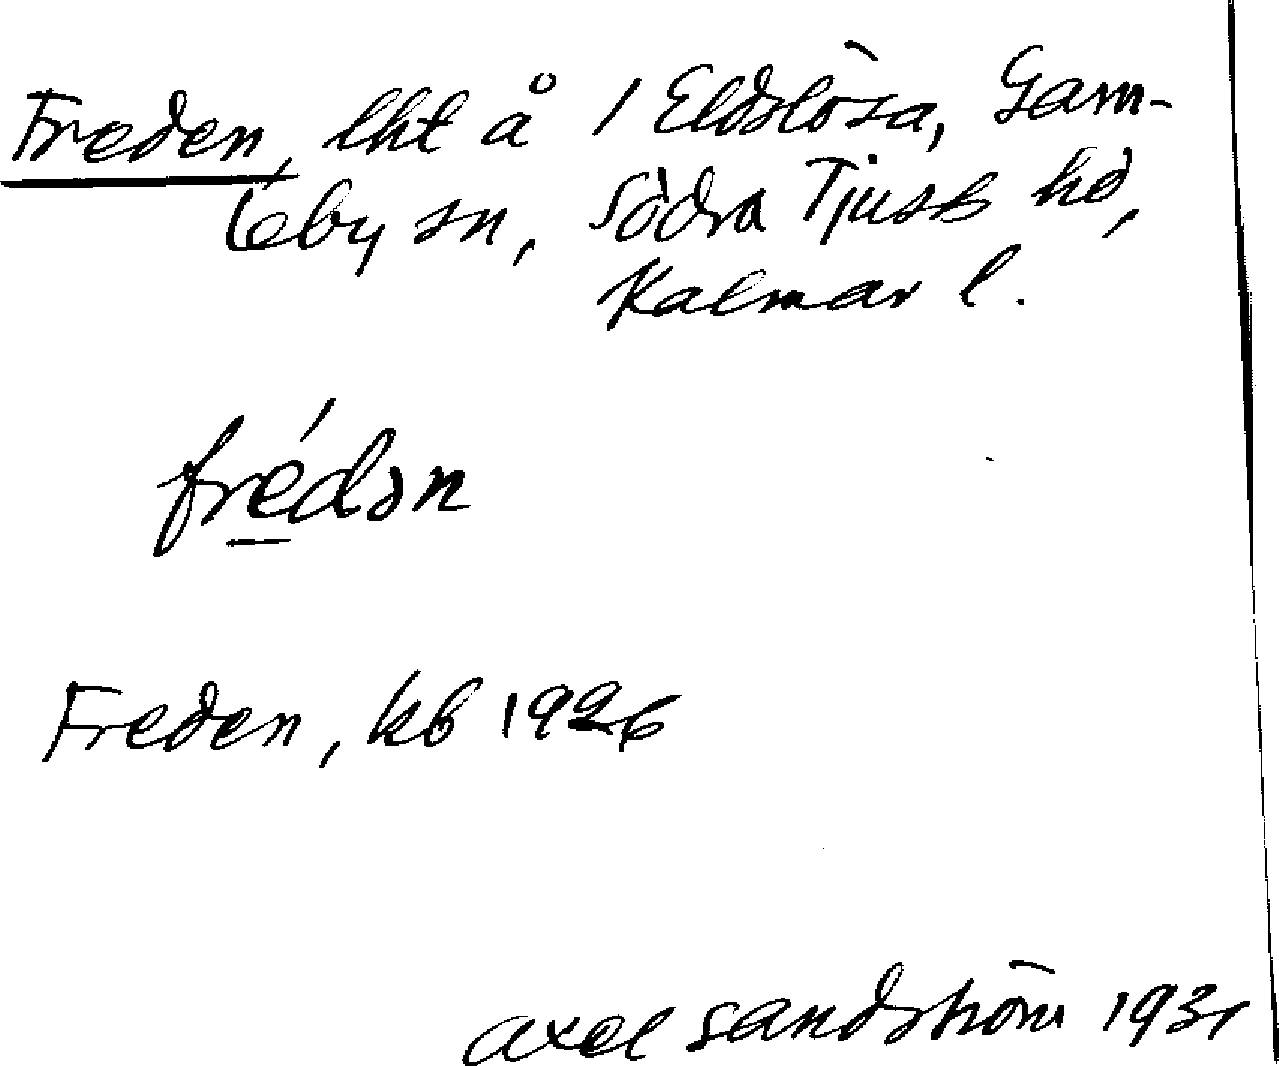 Freden, lht å 1 Eldslösa, Gam-
leby sn, Södra Tjusts hd,
Kalmar l.
frédən
Freden, kb 1926
Axel Sandström 1931